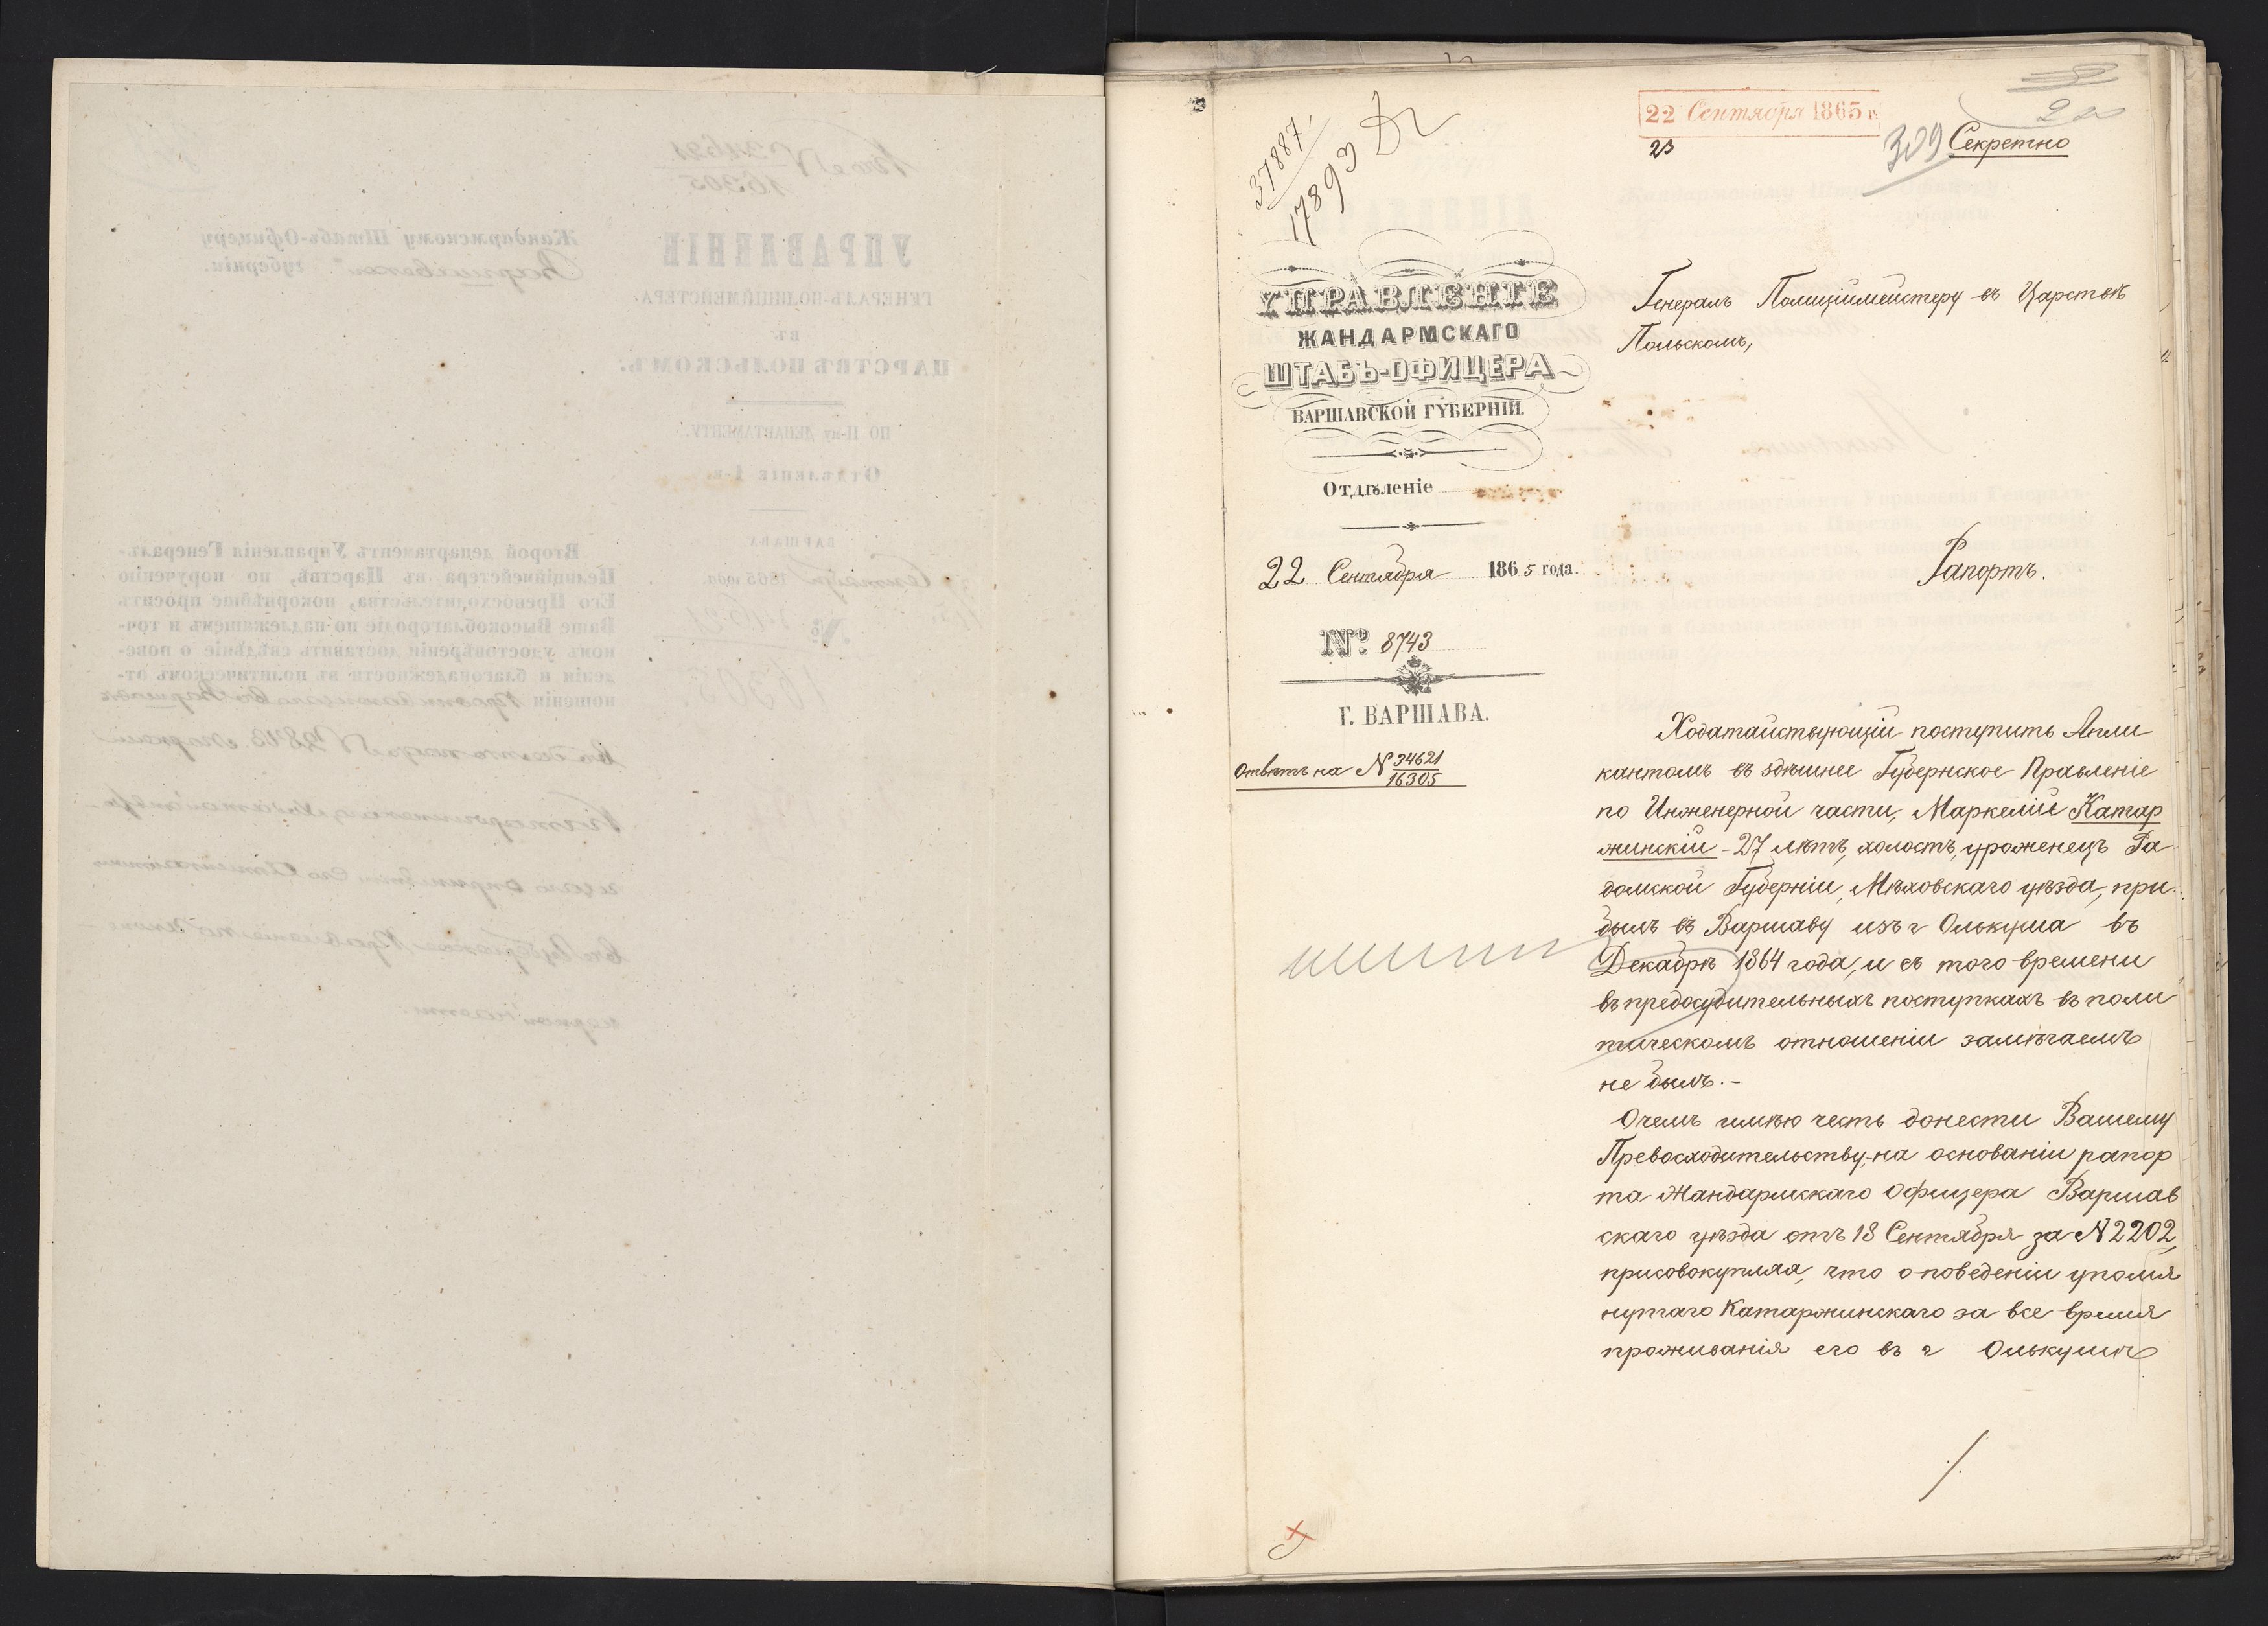 22 Сентября 1865 г.
23
309
Секретно
37887
17893
УПРАВЛЕНІЕ
ЖАНДАРМСКАГО
ШТАБЪ-ОФИЦЕРА
ВАРШАВСКОЙ ГУБЕРНІИ.
Отдѣленіе
22 Сентября 1865 года.
№ 8743
Г. ВАРШАВА.
Отвѣтъ на № 34621
16305
Генералъ Полиціймейстеру въ Царствѣ
Польскомъ,
Рапортъ.
Ходатайствующій поступить Апли
кантомъ въ здѣшнее Губернское Правленіе
по Инженерной части, Маркелій Катар
жинскій - 27 лѣтъ, холостъ, уроженецъ Ра
домской Губерніи, Мѣховскаго уѣзда, при
былъ въ Варшаву изъ г Олькуша въ
Декабрѣ 1864 года, и съ того времени
въ предосудительныхъ поступкахъ въ поли
тическомъ отношеніи замѣчаемъ
не былъ. -
Очемъ имѣю честь донести Вашему
Превосходительству, на основаніи рапор
та Жандармскаго Офицера Варшав
скаго уѣзда отъ 18 Сентября за № 2202,
присовокупляя, что о поведеніи упомя
нутаго Катаржинскаго за все время
проживанія его въ г Олькушѣ
./.
УПРАВЛЕНІЕ
ГЕНЕРАЛЪ-ПОЛИЦІЙМЕЙСТЕРА
ВЪ
ЦАРСТВѢ ПОЛЬСКОМЪ.
ПО II-му ДЕПАРТАМЕНТУ.
Отдѣленіе 1-е.
ВАРШАВА.
Сентября 1865 года.
№ 34621
16305
Жандармскому Штабъ-Офицеру
Варшавской губерніи.
Второй департаментъ Управленія Генералъ-
Полиціймейстера въ Царствѣ, по порученію
Его Превосходительства, покорнѣйше проситъ
Ваше Высокоблагородіе по надлежащемъ и точ-
номъ удостовѣреніи доставить свѣдѣніе о пове-
деніи и благонадежности въ политическомъ от-
ношеніи